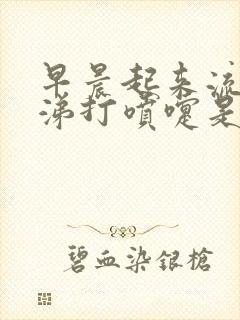 早晨起来流
涕打喷嚏是
碧血染银枪